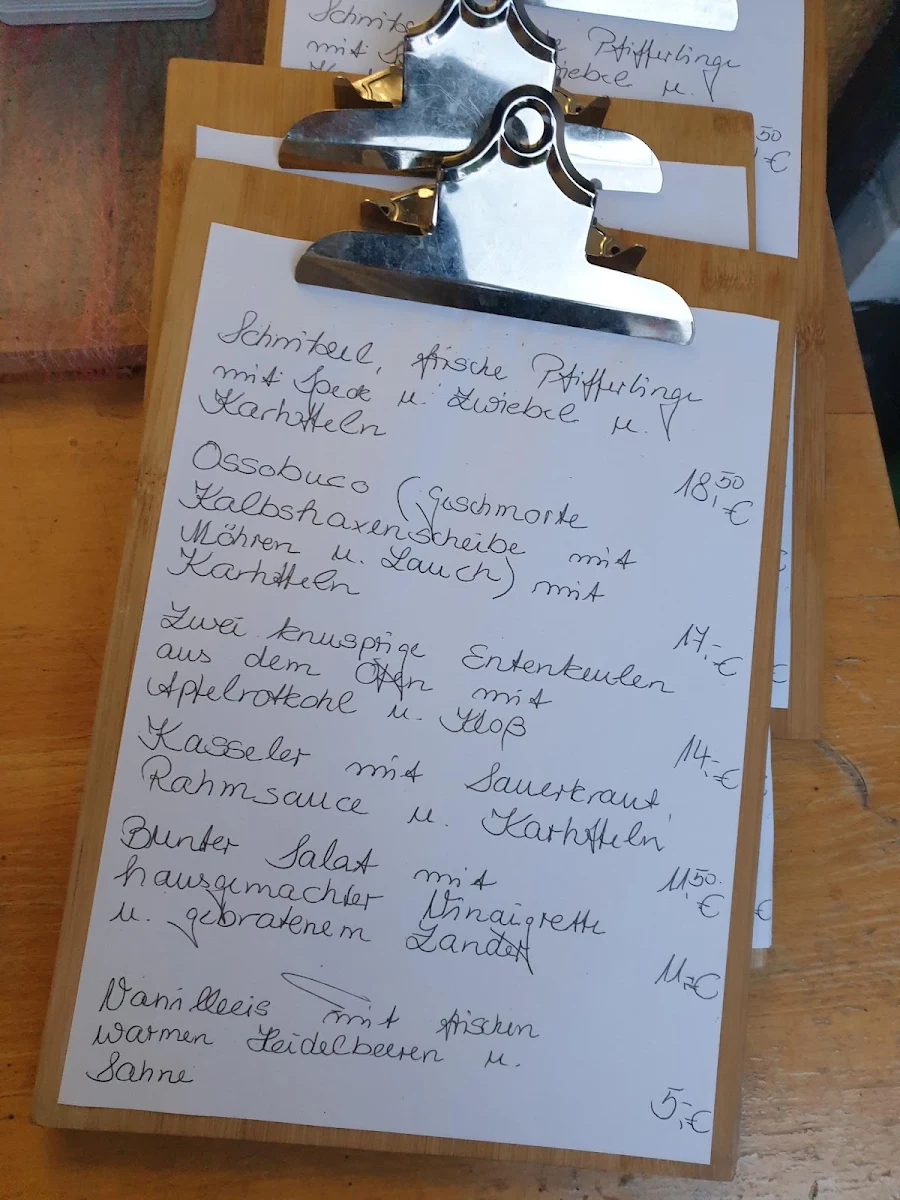 Schnitzel
mit Sp
Pfifferlinge
Zwiebel u.
50
,-€
Schnitzel, frische Pfifferlinge
mit Speck u. Zwiebel u.
Kartoffeln
18,50 €
Ossobuco (geschmorte
Kalbshaxenscheibe mit
Möhren u. Lauch) mit
Kartoffeln
17,-€
Zwei knusprige Entenkeulen
aus dem Ofen mit
Apfelrotkohl u. Kloß
14,-€
Kasseler mit Sauerkraut,
Rahmsauce u. Kartoffeln
11,50 €
Bunter Salat mit
hausgemachter Vinaigrette
u. gebratenem Zander
11,-€
Vanilleeis mit frischen
warmen Heidelbeeren u.
Sahne
5,-€